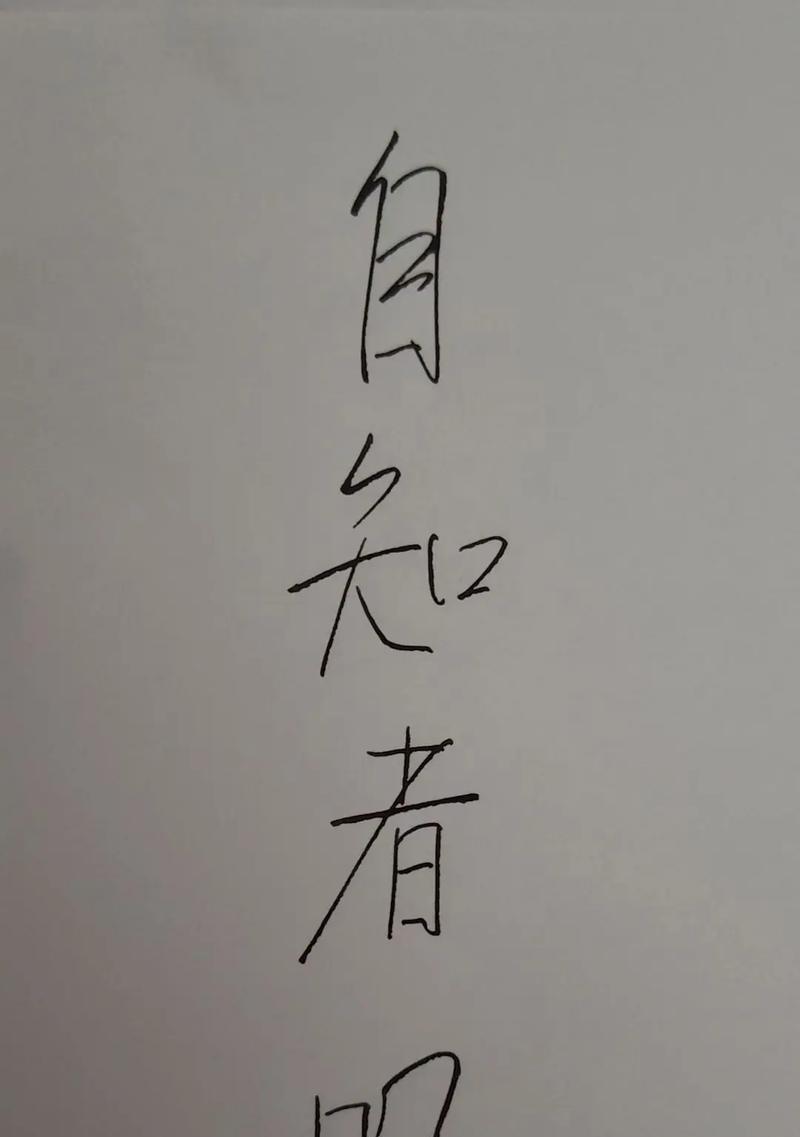 自知者